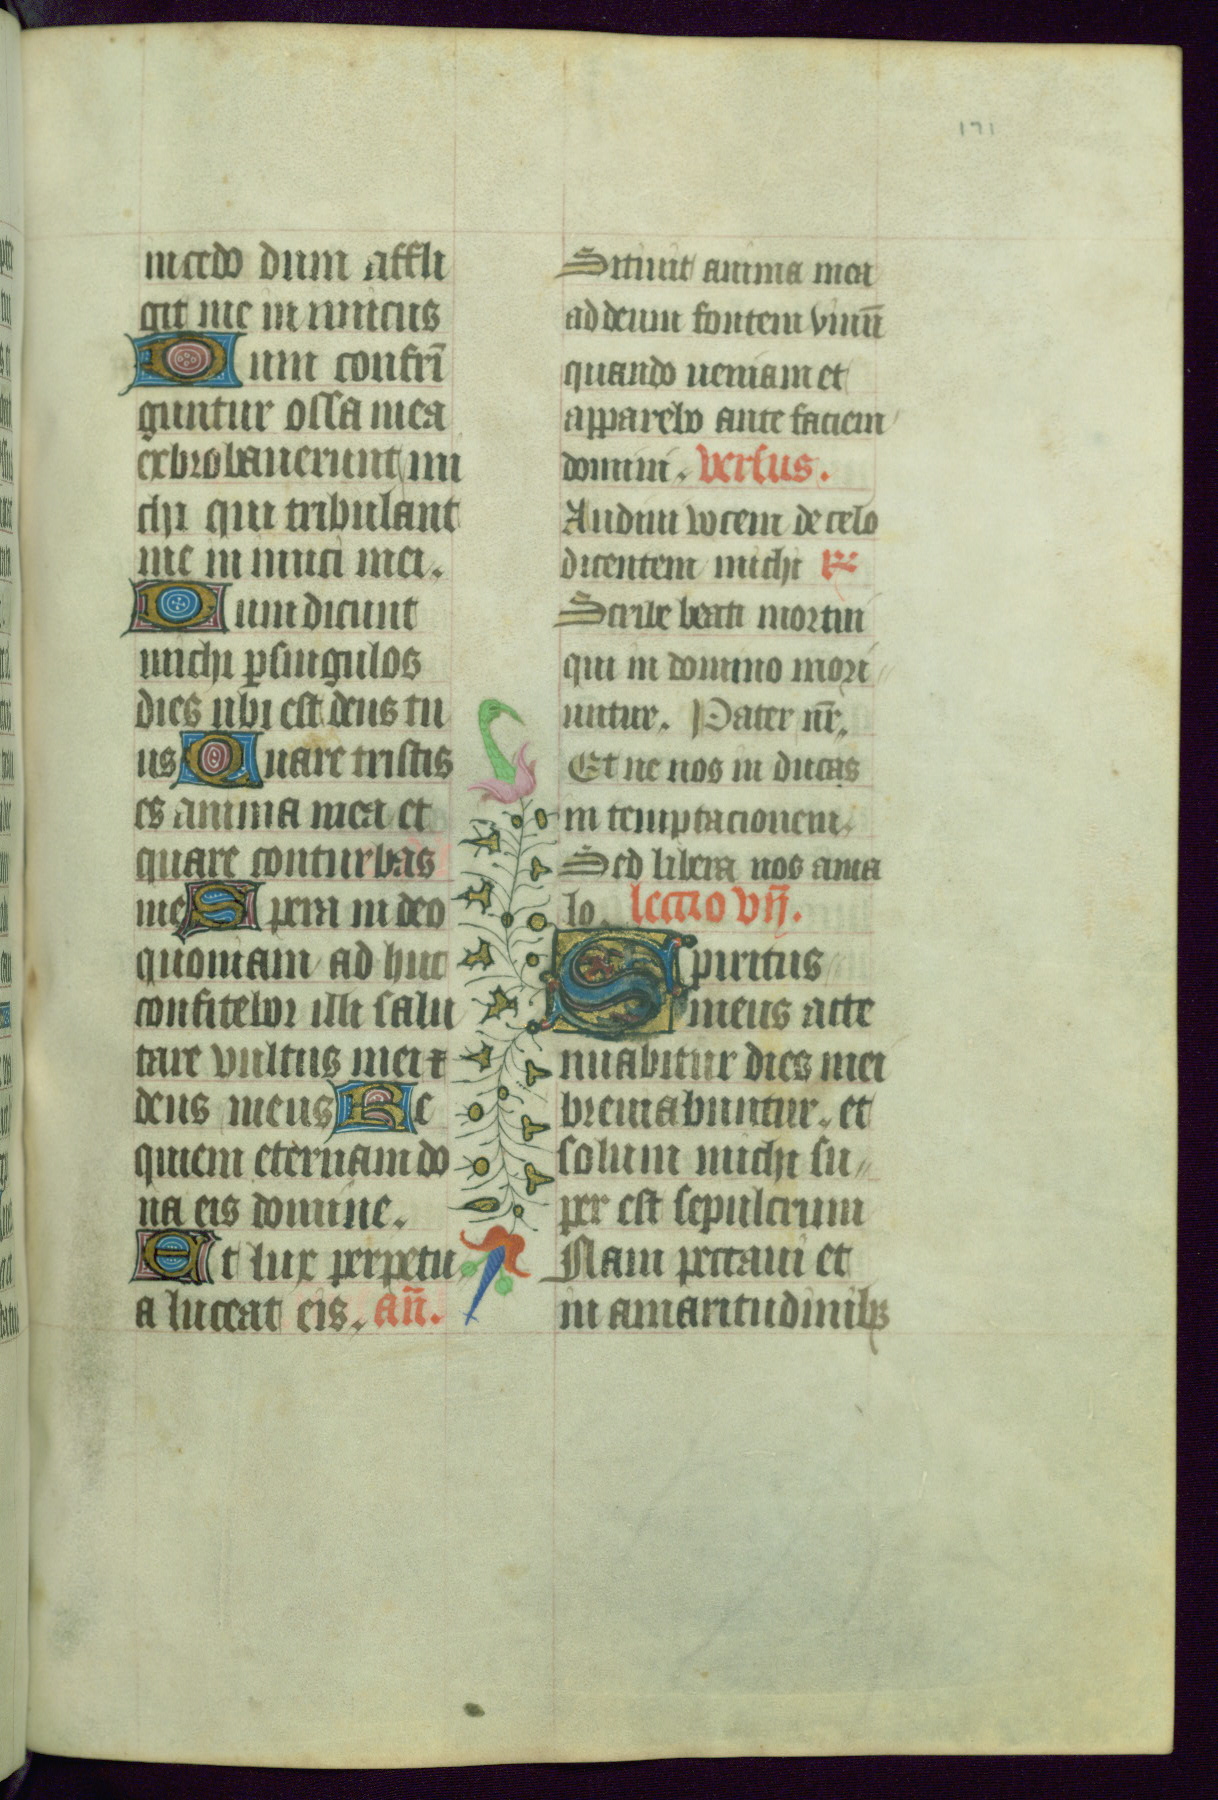 171
incedo dum affli
git me in imicus
Dum confrī
guntur ossa mea
exbrobauerunt mi
chi qui tribulant
me in imici mei.
Dum dicunt
michi p singulos
dies ubi est deus tu
us Quare tristis
es anima mea et
quare conturbas
me Spera in deo
quoniam ad huc
confitebor illi salu
tare vultus mei et
deus meus Re
quiem eternam do
na eis domine.
Et lux perpetu
a luceat eis. an̄.
Sitiuit anima mea
ad deum fontem viuū
quando ueniam et
apparebo ante faciem
domini. versus.
Audiui vocem de celo
dicentem michi R
Scribe beati mortui
qui in domino mori
untur. Pater nr̄.
Et ne nos in ducas
in temptacionem.
Sed libera nos ama
lo. lectio vij.
Spiritus
meus atte
nuabitur dies mei
breuiabuntur. et
solum michi su
per est sepulcrum
Nam peccaui et
in amaritudinibꝫ